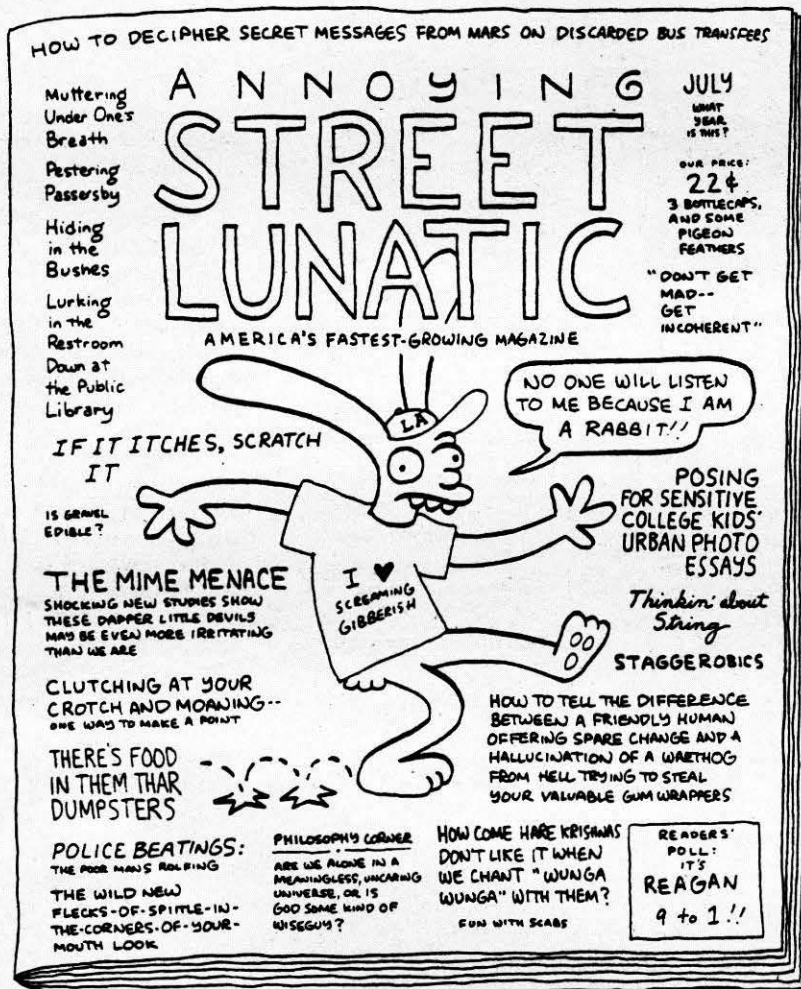 HOW TO DECIPHER SECRET MESSAGES FROM MARS ON DISCARDED BUS TRANSFERS
ANNOYING
STREET
LUNATIC
AMERICA'S FASTEST-GROWING MAGAZINE
Muttering
Under One's
Breath
Pestering
Passersby
Hiding
in the
Bushes
Lurking
in the
Restroom
Down at
the Public
Library
JULY
WHAT
YEAR
IS THIS?
OUR PRICE:
22¢
3 BOTTLECAPS,
AND SOME
PIGEON
FEATHERS
"DON'T GET
MAD--
GET
INCOHERENT"
NO ONE WILL LISTEN
TO ME BECAUSE I AM
A RABBIT!!
LA
I ♥
SCREAMING
GIBBERISH
IF IT ITCHES, SCRATCH
IT
IS GRAVEL
EDIBLE?
THE MIME MENACE
SHOCKING NEW STUDIES SHOW
THESE DAPPER LITTLE DEVILS
MAY BE EVEN MORE IRRITATING
THAN WE ARE
CLUTCHING AT YOUR
CROTCH AND MOANING--
ONE WAY TO MAKE A POINT
THERE'S FOOD
IN THEM THAR
DUMPSTERS
POSING
FOR SENSITIVE
COLLEGE KIDS'
URBAN PHOTO
ESSAYS
Thinkin' about
String
STAGGEROBICS
HOW TO TELL THE DIFFERENCE
BETWEEN A FRIENDLY HUMAN
OFFERING SPARE CHANGE AND A
HALLUCINATION OF A WARTHOG
FROM HELL TRYING TO STEAL
YOUR VALUABLE GUM WRAPPERS
POLICE BEATINGS:
THE POOR MANS ROLFING
THE WILD NEW
FLECKS-OF-SPITTLE-IN-
THE-CORNERS-OF-YOUR-
MOUTH LOOK
PHILOSOPHY CORNER
ARE WE ALONE IN A
MEANINGLESS, UNCARING
UNIVERSE, OR IS
GOD SOME KIND OF
WISEGUY?
HOW COME HARE KRISHNAS
DON'T LIKE IT WHEN
WE CHANT "WUNGA
WUNGA" WITH THEM?
FUN WITH SCABS
READERS'
POLL:
IT'S
REAGAN
9 to 1!!